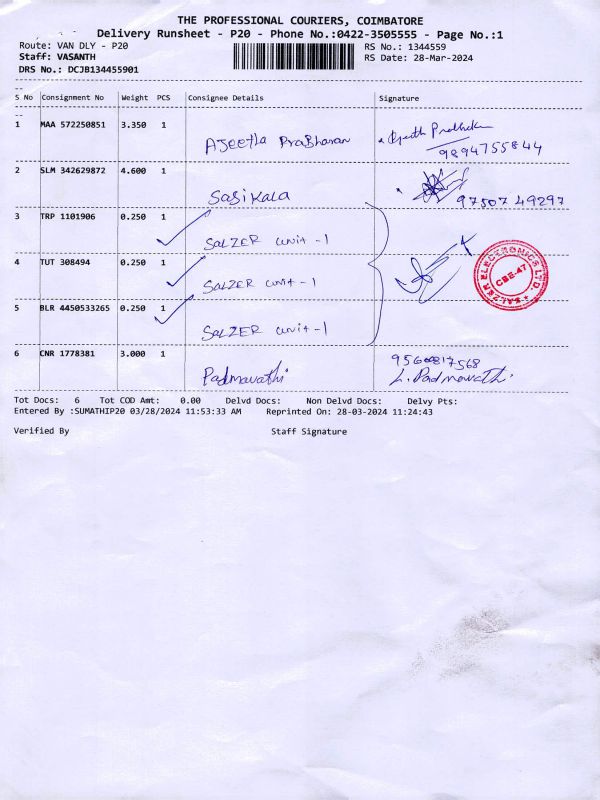 THE PROFESSIONAL COURIERS, COIMBATORE
Delivery Runsheet - P20 - Phone No.:0422-3505555 - Page No.:1
Route: VAN DLY - P20 RS No.: 1344559
Staff: VASANTH RS Date: 28-Mar-2024
DRS No.: DCJB134455901
S No Consignment No Weight PCS Consignee Details Signature
1 MAA 572250851 3.350 1 Ajeetha Prabharan
9894755844
2 SLM 342629872 4.600 1 Sasikala 97507 49297
3 TRP 1101906 0.250 1 SALZER unit -1
4 TUT 308494 0.250 1 SALZER unit -1
SALZER ELECTRONICS LTD. CBE-47
5 BLR 4450533265 0.250 1 SALZER unit -1
6 CNR 1778381 3.000 1 Padmavathi
L. Padmavathi
Tot Docs: 6 Tot COD Amt: 0.00 Delvd Docs: Non Delvd Docs: Delvy Pts:
Entered By :SUMATHIP20 03/28/2024 11:53:33 AM Reprinted On: 28-03-2024 11:24:43
Verified By Staff Signature